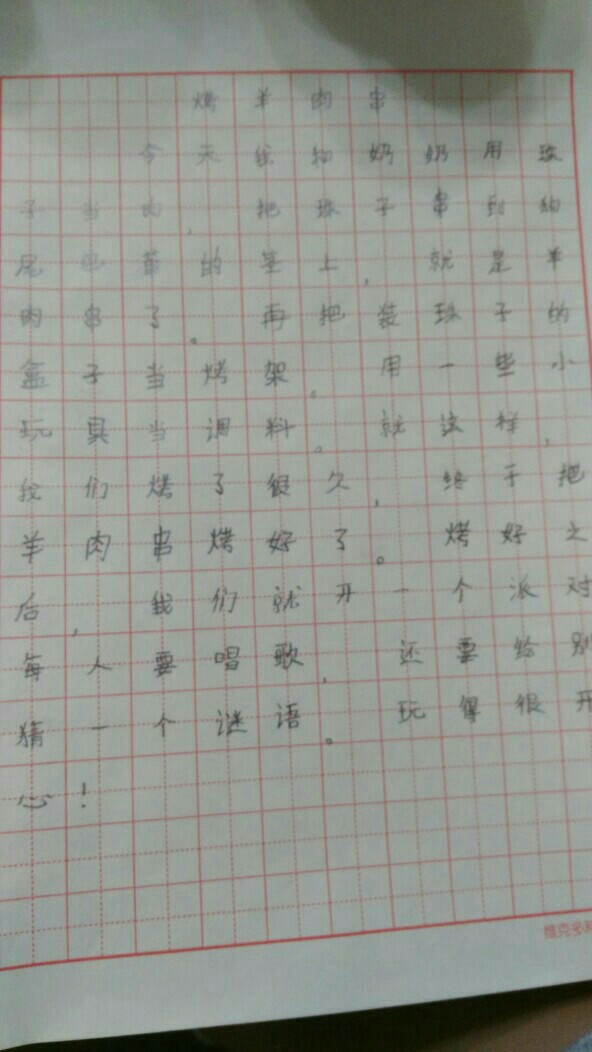 烤羊肉串
今天我和奶奶用珠
子当肉,把珠子串到狗
尾巴草的茎上,就是羊
肉串了。再把装珠子的
盒子当烤架。用一些小
玩具当调料。就这样,
我们烤了很久,终于把
羊肉串烤好了。烤好之
后,我们就开一个派对
每人要唱歌,还要给别
猜一个谜语。玩得很开
心!
维克多